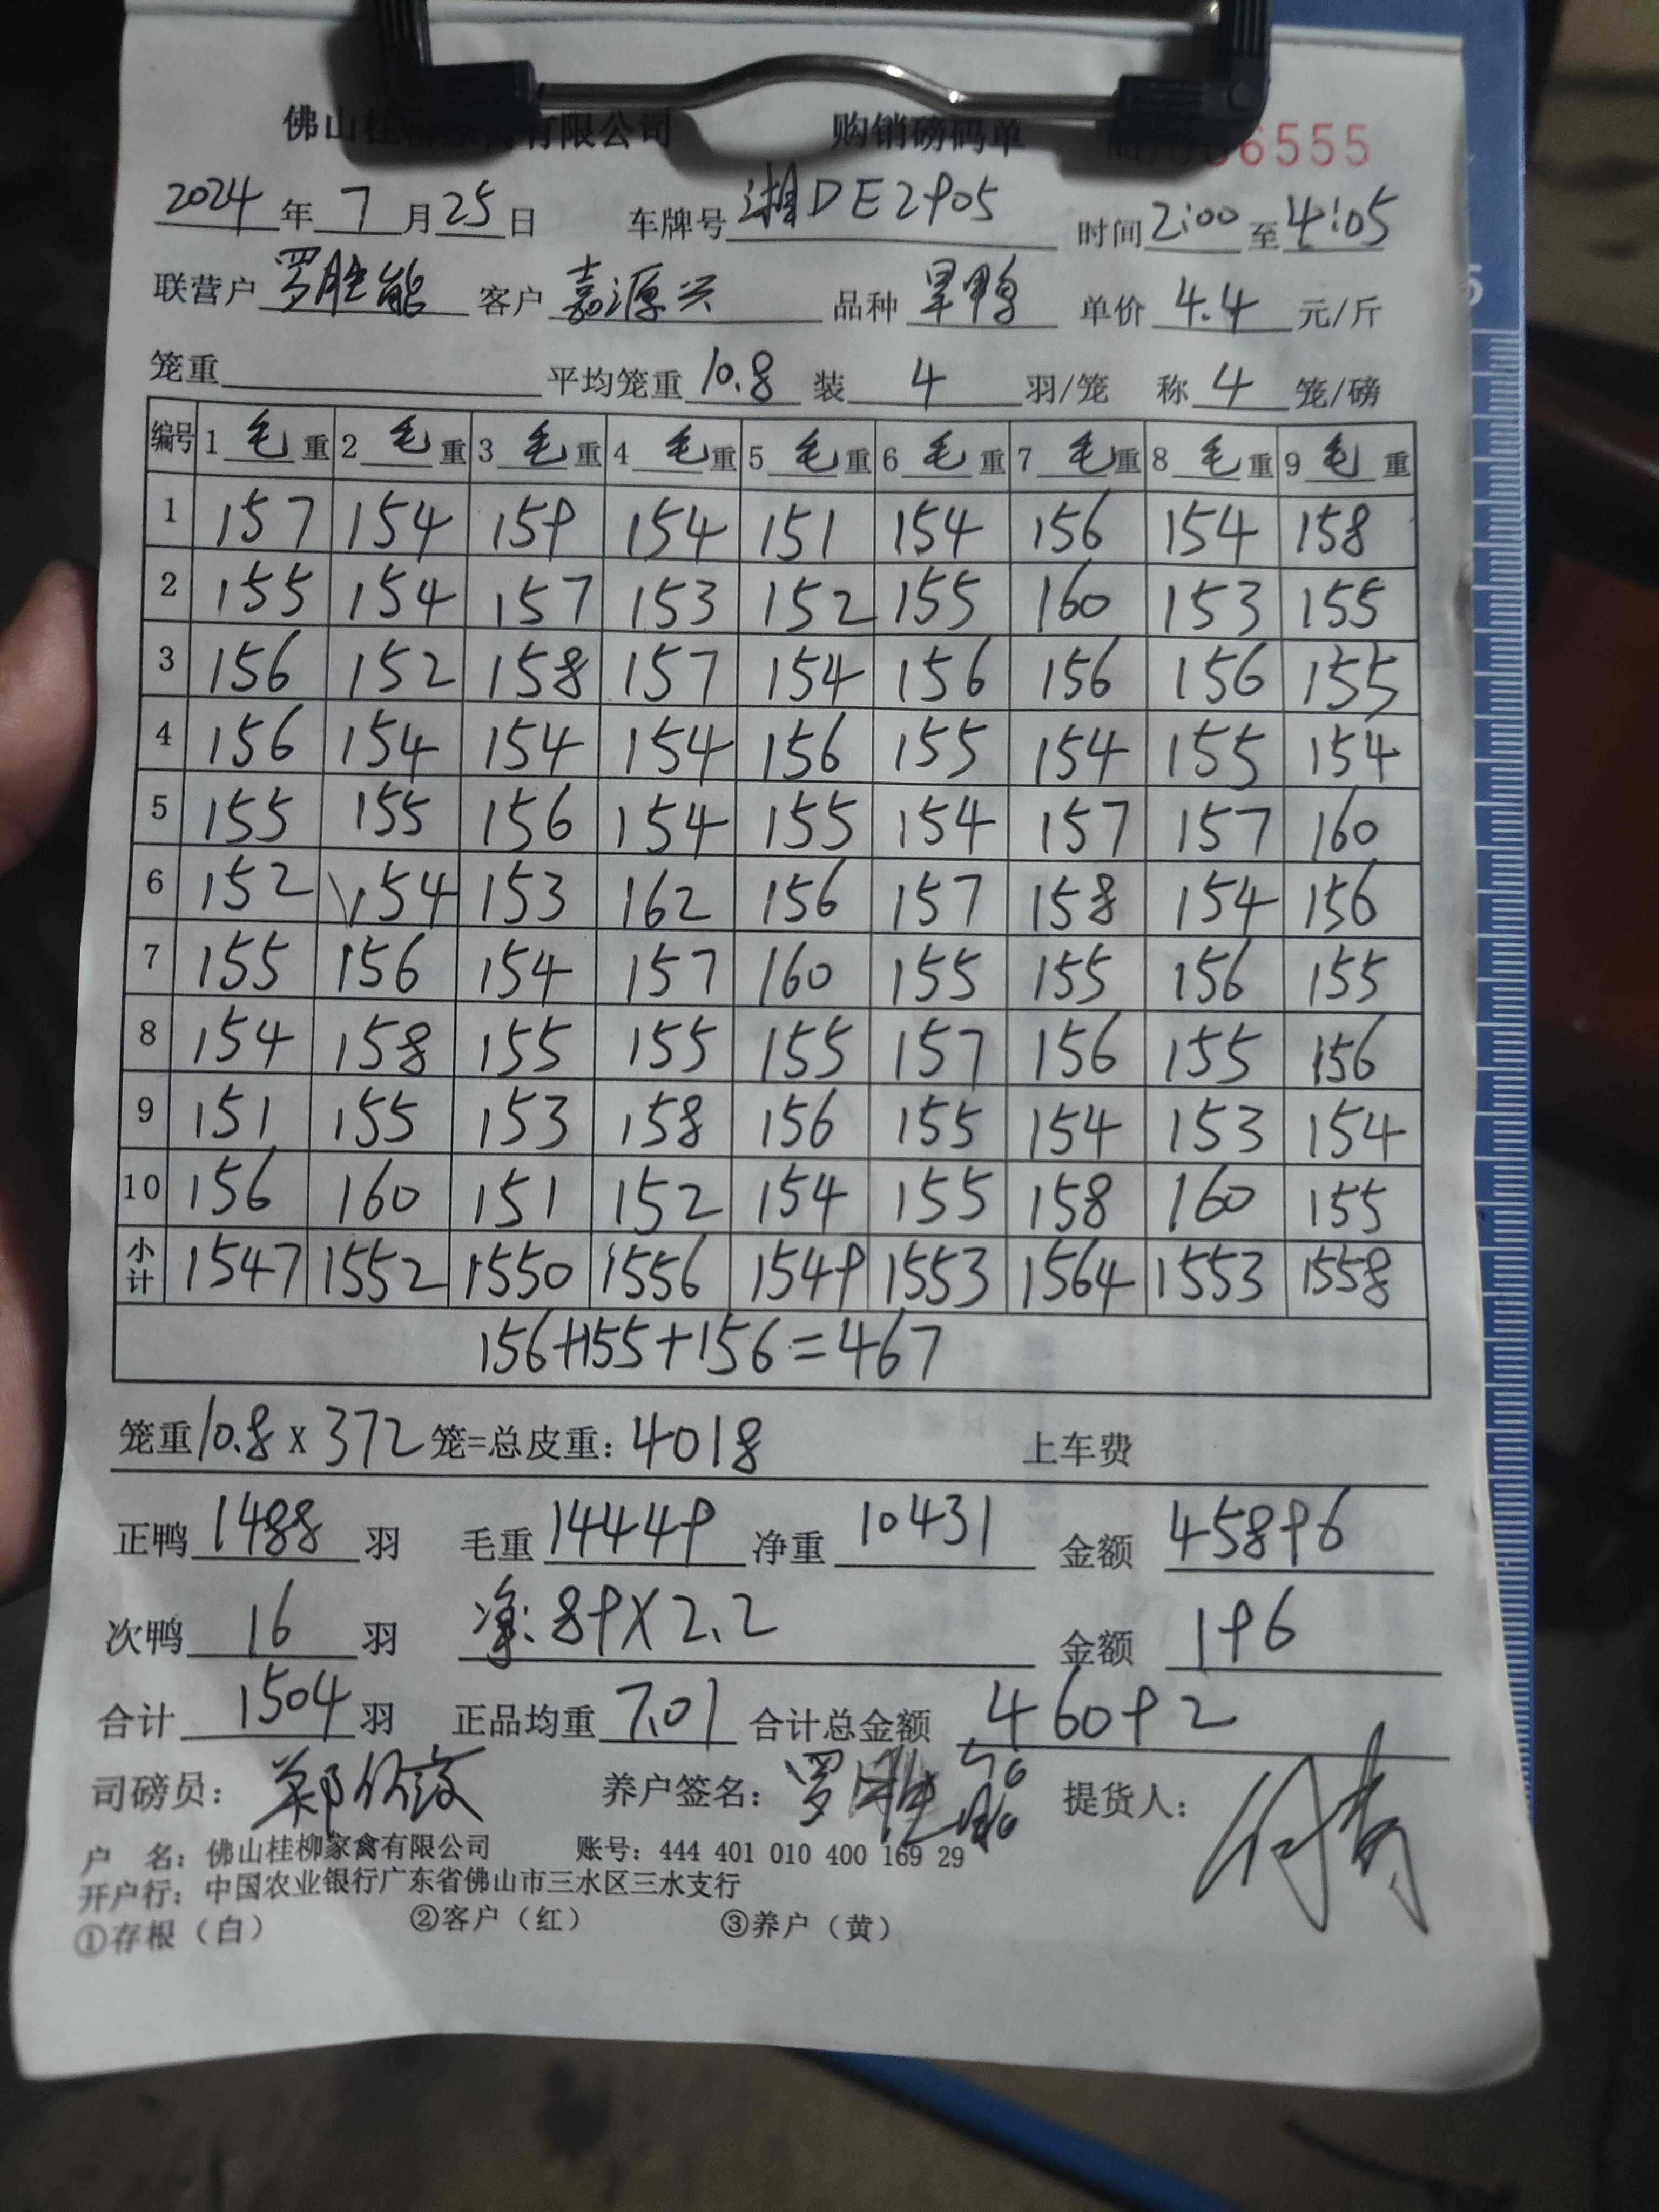 佛山桂柳家禽有限公司 购销磅码单 6555
2024年7月25日 车牌号 湘DE2905 时间2:00至4:05
联营户 罗胜能 客户 嘉源兴 品种 旱鸭 单价 4.4 元/斤
笼重 平均笼重 10.8 装 4 羽/笼 称 4 笼/磅
编号 1 毛 重 2 毛 重 3 毛 重 4 毛 重 5 毛 重 6 毛 重 7 毛 重 8 毛 重 9 毛 重
1 157 154 159 154 151 154 156 154 158
2 155 154 157 153 152 155 160 153 155
3 156 152 158 157 154 156 156 156 155
4 156 154 154 154 156 155 154 155 154
5 155 155 156 154 155 154 157 157 160
6 152 154 153 162 156 157 158 154 156
7 155 156 154 157 160 155 155 156 155
8 154 158 155 155 155 157 156 155 156
9 151 155 153 158 156 155 154 153 154
10 156 160 151 152 154 155 158 160 155
小计 1547 1552 1550 1556 1549 1553 1564 1553 1558
156+155+156=467
笼重10.8×372笼=总皮重：4018 上车费
正鸭 1488 羽 毛重 14449 净重 10431 金额 45896
次鸭 16 羽 净：89×2.2 金额 196
合计 1504 羽 正品均重 7.01 合计总金额 46092
司磅员： 养户签名：罗胜能 提货人：
户 名：佛山桂柳家禽有限公司 账号：444 401 010 400 169 29
开户行：中国农业银行广东省佛山市三水区三水支行
①存根（白） ②客户（红） ③养户（黄）